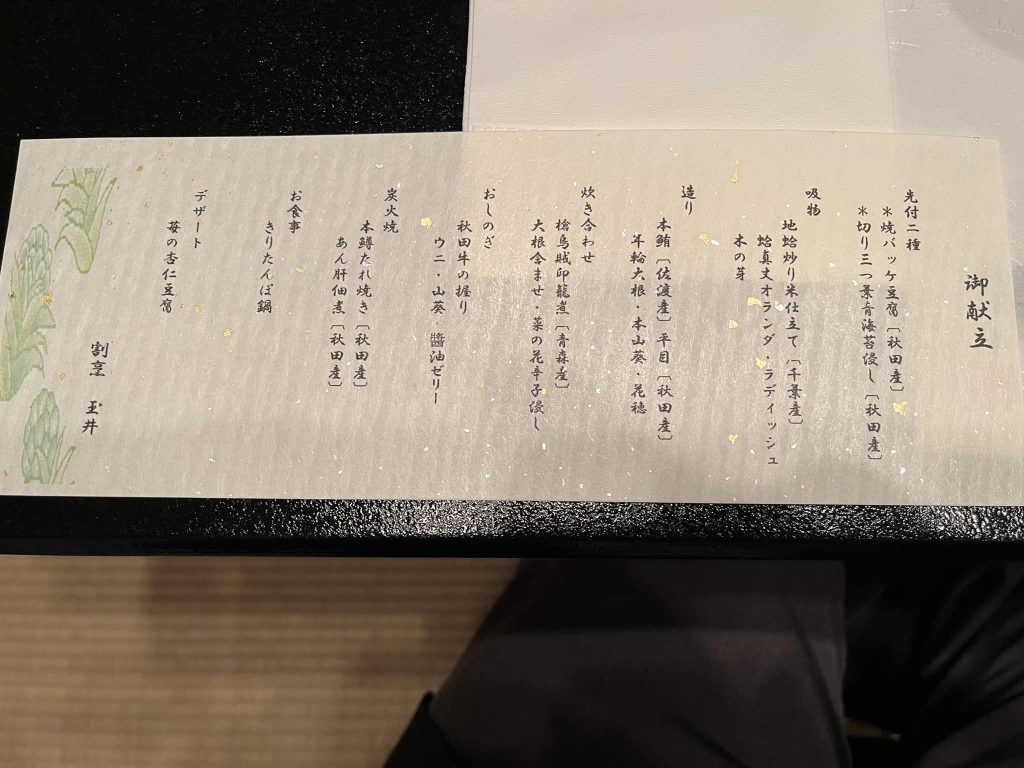 御献立
先付二種
＊焼バッケ豆腐［秋田産］
＊切り三つ葉青海苔浸し［秋田産］
吸物
地蛤炒り米仕立て［千葉産］
蛤真丈オランダ・ラディッシュ
木の芽
造り
本鮪［佐渡産］平目［秋田産］
年輪大根・本山葵・花穂
炊き合わせ
槍烏賊印籠煮［青森産］
大根含ませ・菜の花辛子浸し
おしのぎ
秋田牛の握り
ウニ・山葵・醬油ゼリー
炭火焼
本鱒たれ焼き［秋田産］
あん肝佃煮［秋田産］
お食事
きりたんぽ鍋
デザート
苺の杏仁豆腐
割烹 玉井